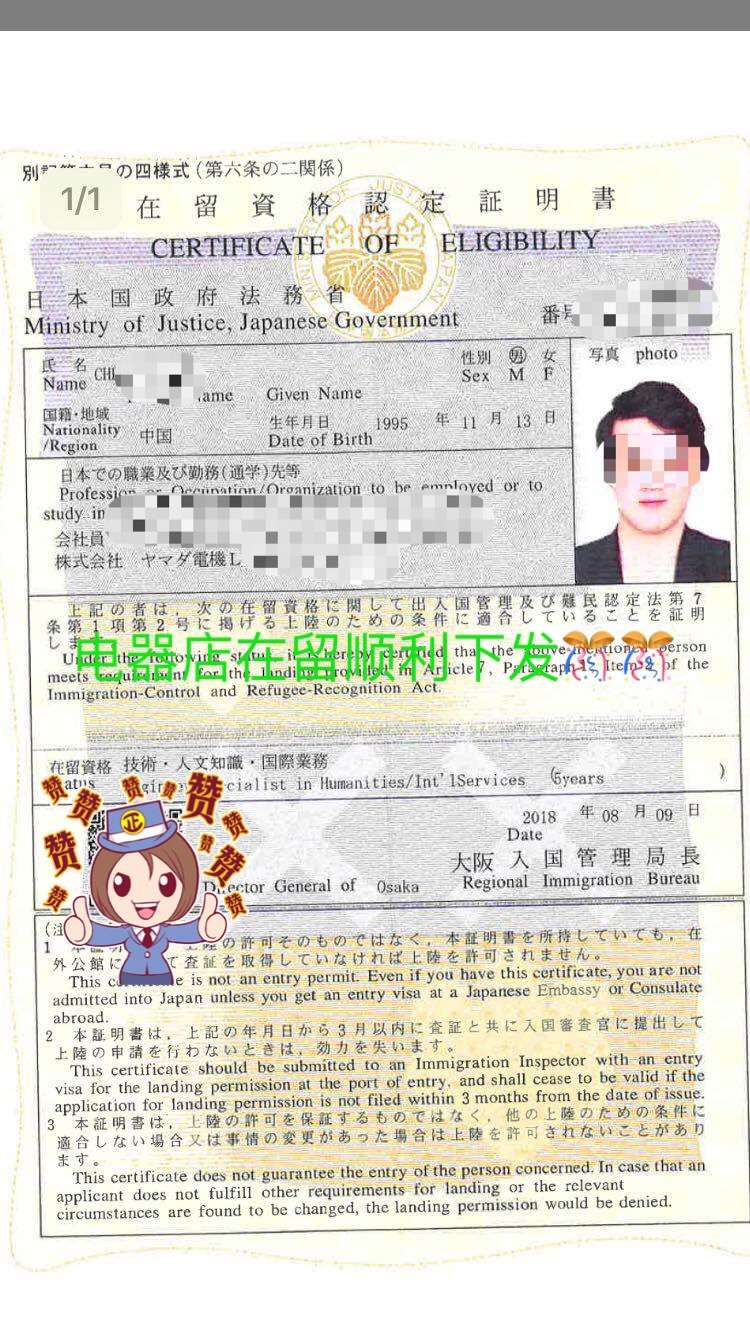 の四様式(第六条の二関係)
1/1
在留資格認定証明書
CERTIFICATE OF ELIGIBILITY
日本国政府法務省
Ministry of Justice, Japanese Government
番号
氏名
Name
Given Name
性別 男 女
Sex M F
写真 photo
国籍・地域
Nationality
/Region
中国
生年月日 1995 年 11 月 13 日
Date of Birth
日本での職業及び勤務(通学)先等
Profession or Occupation/Organization to be employed or to
study in
会社員
株式会社 ヤマダ電機L
上記の者は,次の在留資格に関して出入国管理及び難民認定法第7
条第1項第2号に掲げる上陸のための条件に適合していることを証明
しま
电器店在留顺利下发
Under the following status, it is hereby certified that the above-mentioned person
meets requirement for the landing provided in Article 7, Paragraph Item of the
Immigration-Control and Refugee-Recognition Act.
在留資格 技術・人文知識・国際業務
in Humanities/Int'lServices (5years )
赞 赞 赞 赞 赞 赞 赞 赞 赞 赞 赞
正
2018 年 08 月 09 日
Date
大阪 入国管理局長
Director General of Osaka Regional Immigration Bureau
(注
1 上陸の許可そのものではなく,本証明書を所持していても,在
外公館に て査証を取得していなければ上陸を許可されません。
This is not an entry permit. Even if you have this certificate, you are not
admitted into Japan unless you get an entry visa at a Japanese Embassy or Consulate
abroad.
2 本証明書は,上記の年月日から3月以内に査証と共に入国審査官に提出して
上陸の申請を行わないときは,効力を失います。
This certificate should be submitted to an Immigration Inspector with an entry
visa for the landing permission at the port of entry, and shall cease to be valid if the
application for landing permission is not filed within 3 months from the date of issue.
3 本証明書は,上陸の許可を保証するものではなく,他の上陸のための条件に
適合しない場合又は事情の変更があった場合は上陸を許可されないことがあり
ます。
This certificate does not guarantee the entry of the person concerned. In case that an
applicant does not fulfill other requirements for landing or the relevant
circumstances are found to be changed, the landing permission would be denied.